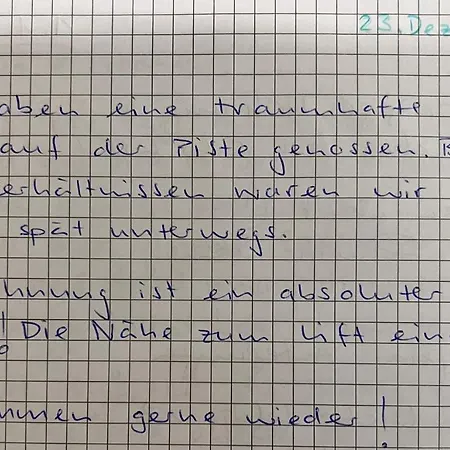 23. Dez
aben eine traumhafte
auf der Piste genossen. B
erhältnissen waren wir
spät unterwegs.
hnung ist ein absoluter
! Die Nähe zum Lift ein
mmen gerne wieder!